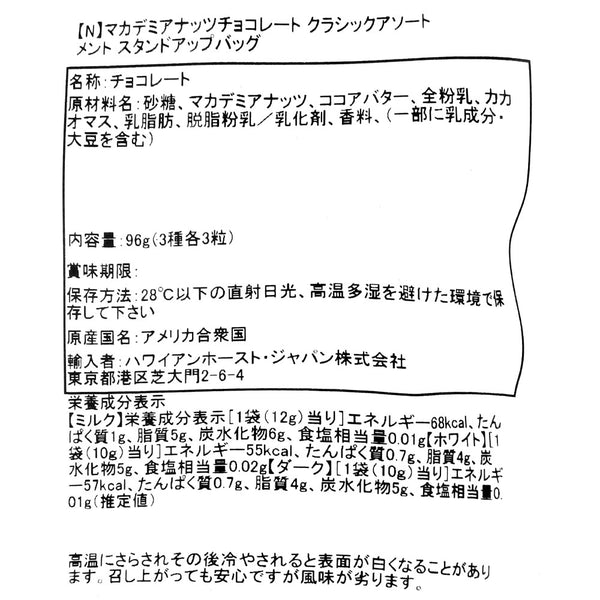 【N】マカデミアナッツチョコレート クラシックアソート
メント スタンドアップバッグ
名称:チョコレート
原材料名:砂糖、マカデミアナッツ、ココアバター、全粉乳、カカ
オマス、乳脂肪、脱脂粉乳／乳化剤、香料、(一部に乳成分・
大豆を含む)
内容量:96g(3種各3粒)
賞味期限:
保存方法:28℃以下の直射日光、高温多湿を避けた環境で保
存して下さい
原産国名:アメリカ合衆国
輸入者:ハワイアンホースト・ジャパン株式会社
東京都港区芝大門2-6-4
栄養成分表示
【ミルク】栄養成分表示[1袋(12g)当り]エネルギー68kcal、たん
ぱく質1g、脂質5g、炭水化物6g、食塩相当量0.01g【ホワイト】[1
袋(10g)当り]エネルギー55kcal、たんぱく質0.7g、脂質4g、炭
水化物5g、食塩相当量0.02g【ダーク】[1袋(10g)当り]エネル
ギー57kcal、たんぱく質0.7g、脂質4g、炭水化物5g、食塩相当量0.
01g(推定値)
高温にさらされその後冷やされると表面が白くなることがあり
ます。召し上がっても安心ですが風味が劣ります。